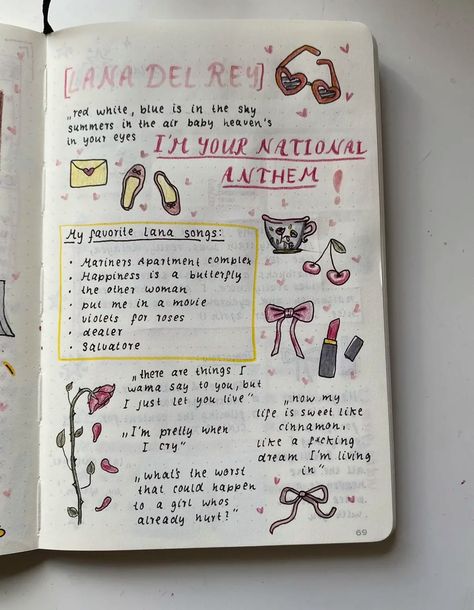 [LANA DEL REY]
„red white, blue is in the sky
summers in the air baby heaven's
in your eyes
I'M YOUR NATIONAL
ANTHEM!
My favorite lana songs:
• Mariners Apartment complex
• Happiness is a butterfly
• the other woman
• put me in a movie
• violets for roses
• dealer
• Salvatore
„there are things I
wanna say to you, but
I just let you live“
„I'm pretty when
I cry“
„what's the worst
that could happen
to a girl whos
already hurt?“
„now my
life is sweet like
cinnamon,
like a f*cking
dream I'm living
in“
69